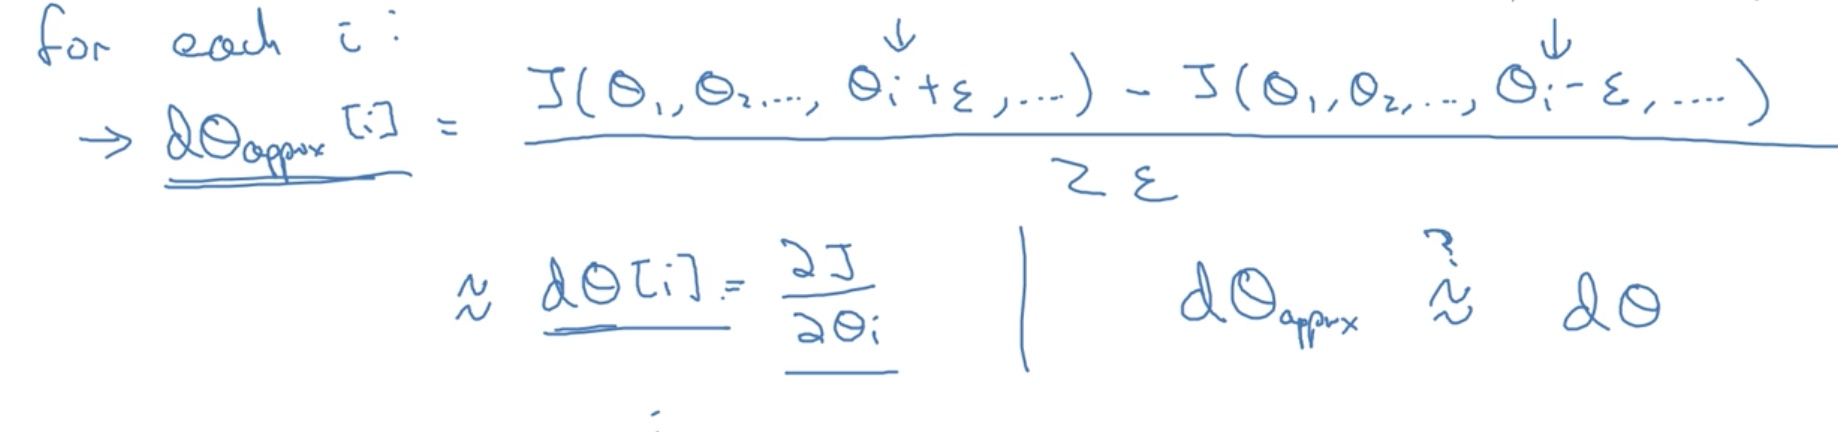 for each i:
→ dθapprox[i] = J(θ₁, θ₂, ..., θᵢ+ε, ...) - J(θ₁, θ₂, ..., θᵢ-ε, ...) / 2ε
≈ dθ[i] = ∂J/∂θᵢ | dθapprox ≈? dθ